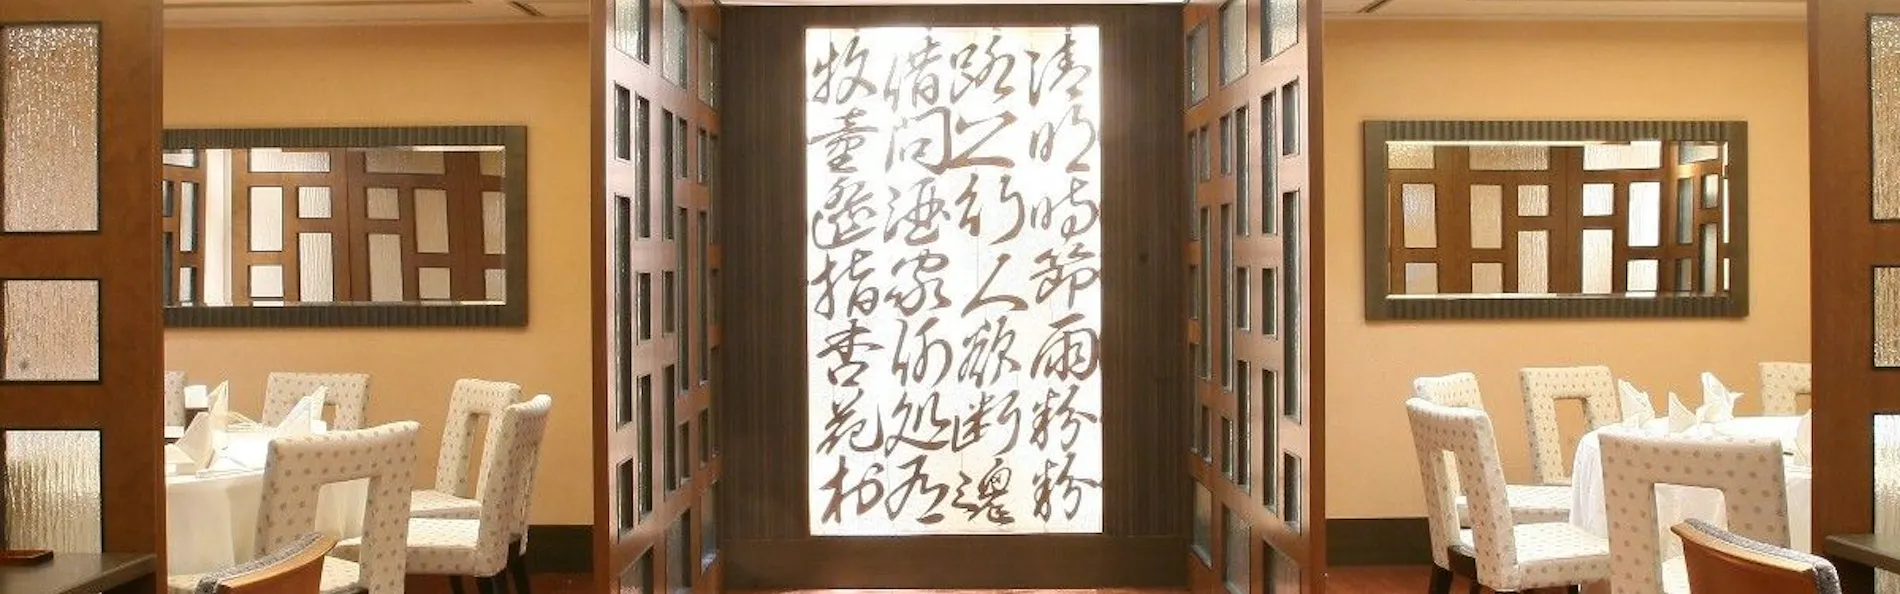 清明時節雨紛紛
路上行人欲断魂
借問酒家何処有
牧童遙指杏花村